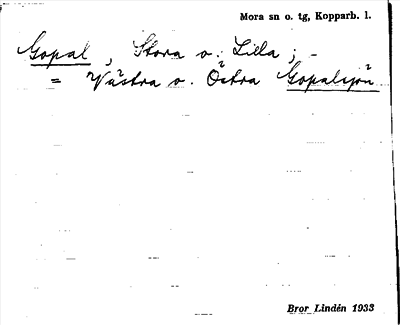 Mora sn o. tg, Kopparb. l.
Gopal, Stora o. Lilla; -
= Västra o. Östra Gopalsjön
Bror Lindén 1933